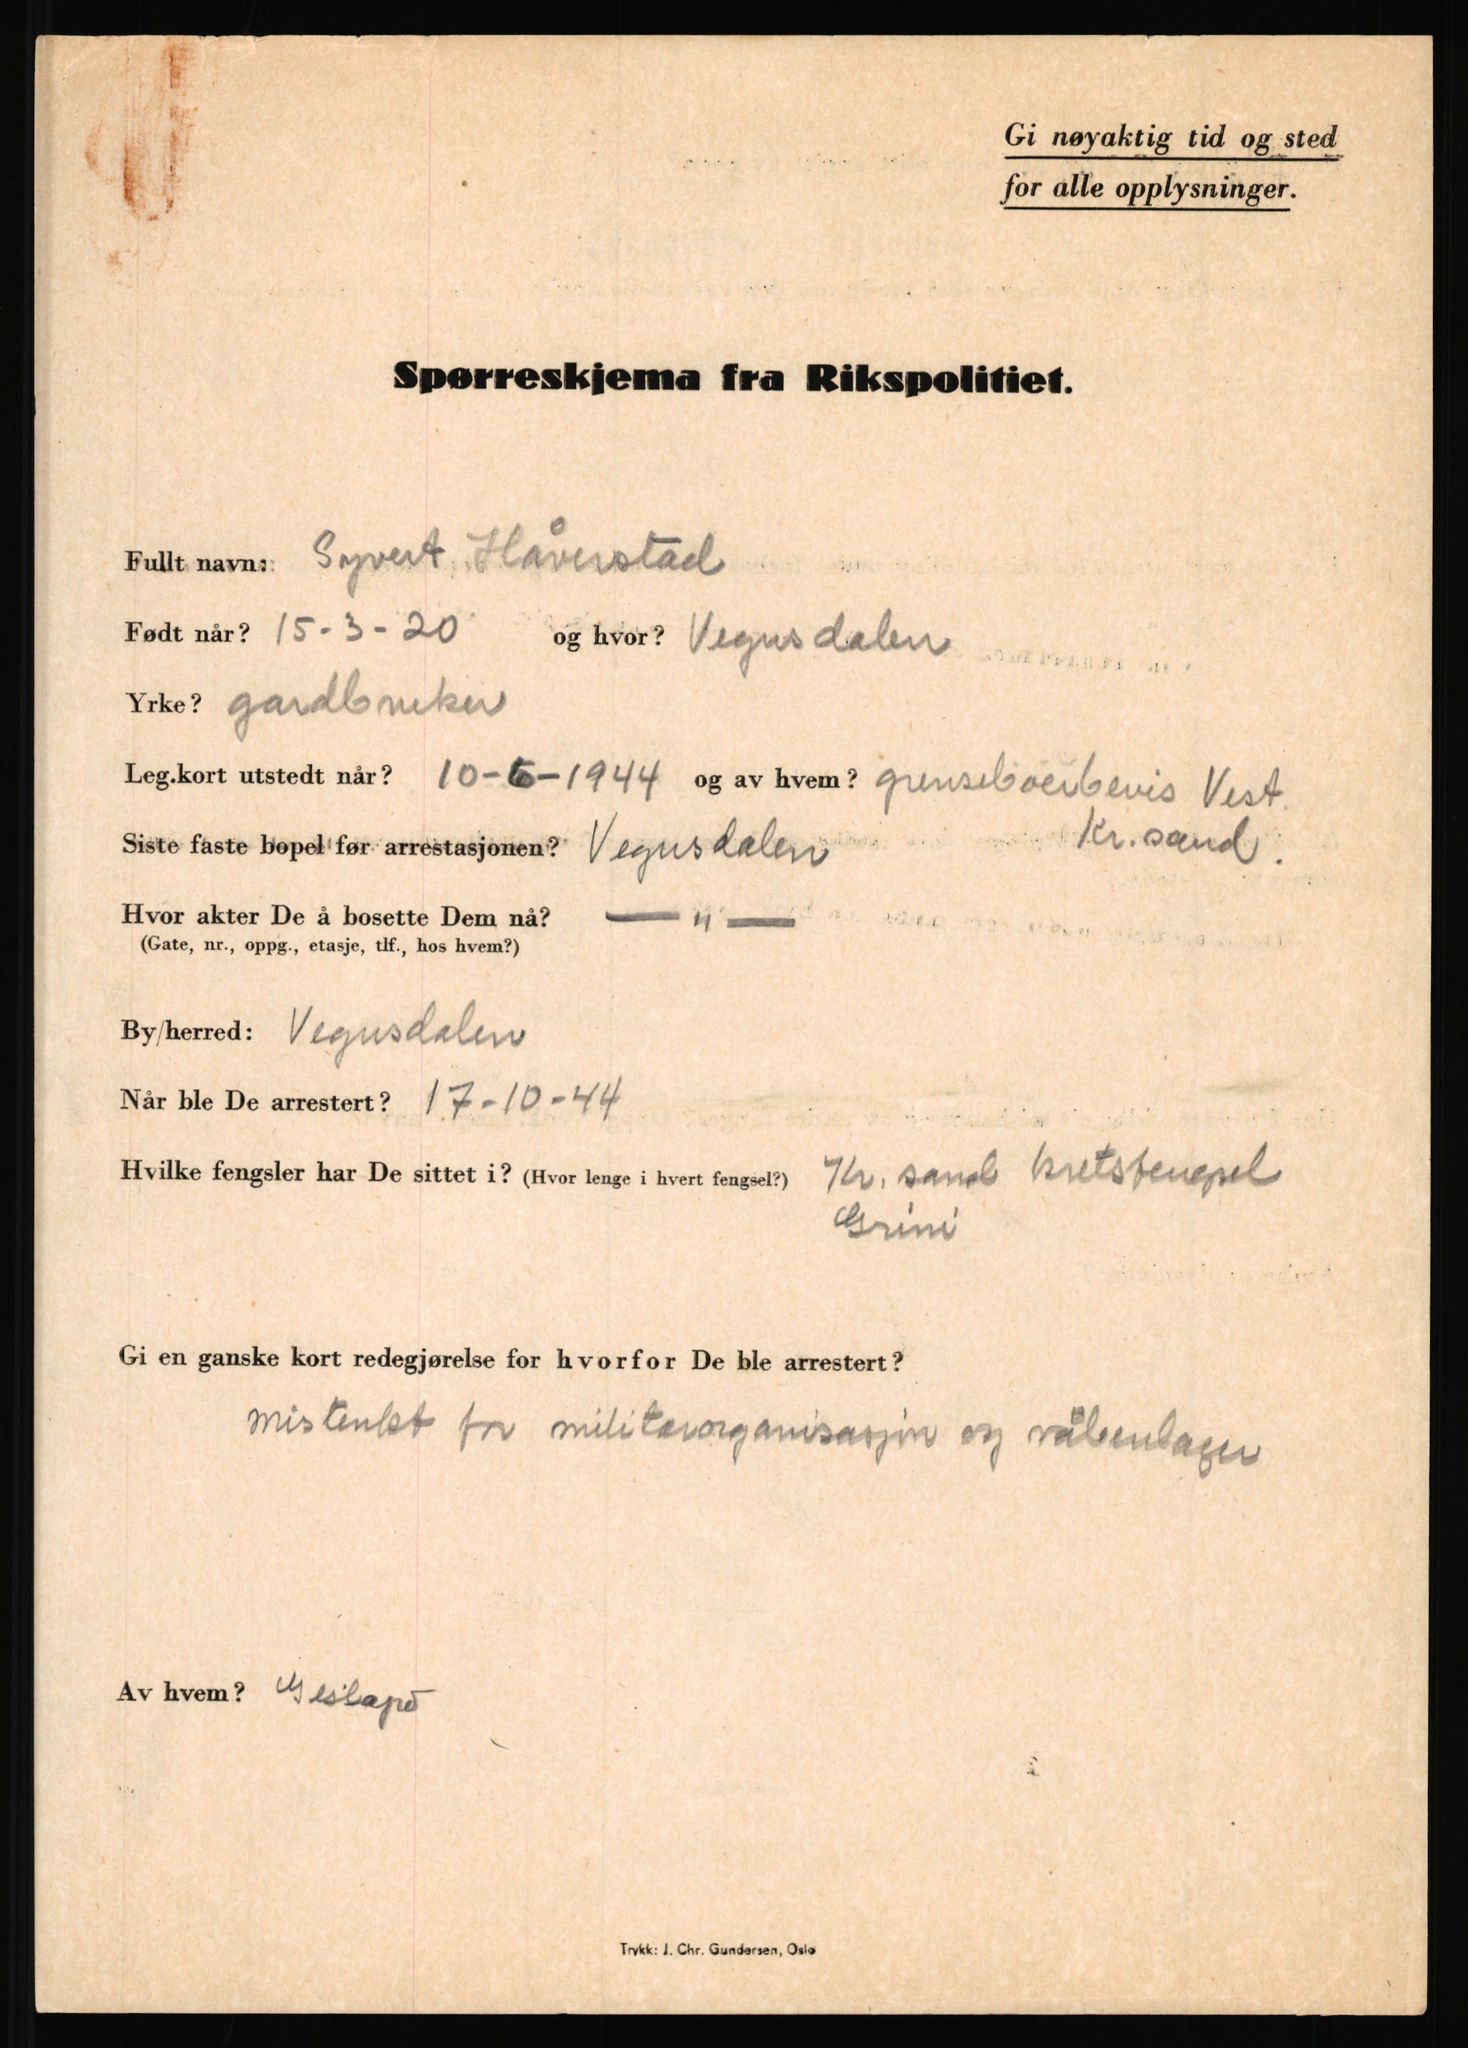 Gi nøyaktig tid og sted
for alle opplysninger.
Spørreskjema fra Rikspolitiet.
Fullt navn: Syvert Håverstad
Født når? 15-3-20 og hvor? Vegusdalen
Yrke? gardbruker
Leg.kort utstedt når? 10-6-1944 og av hvem? grenseboerbevis Vest
Kr.sand.
Siste faste bopel før arrestasjonen? Vegusdalen
Hvor akter De å bosette Dem nå? — " —
(Gate, nr., oppg., etasje, tlf., hos hvem?)
By/herred: Vegusdalen
Når ble De arrestert? 17-10-44
Hvilke fengsler har De sittet i? (Hvor lenge i hvert fengsel?) Kr. sand kretsfengsel
Grini
Gi en ganske kort redegjørelse for hvorfor De ble arrestert?
mistenkt for militærorganisasjon og våbenlager
Av hvem? Gestapo
Trykk: J. Chr. Gundersen, Oslo